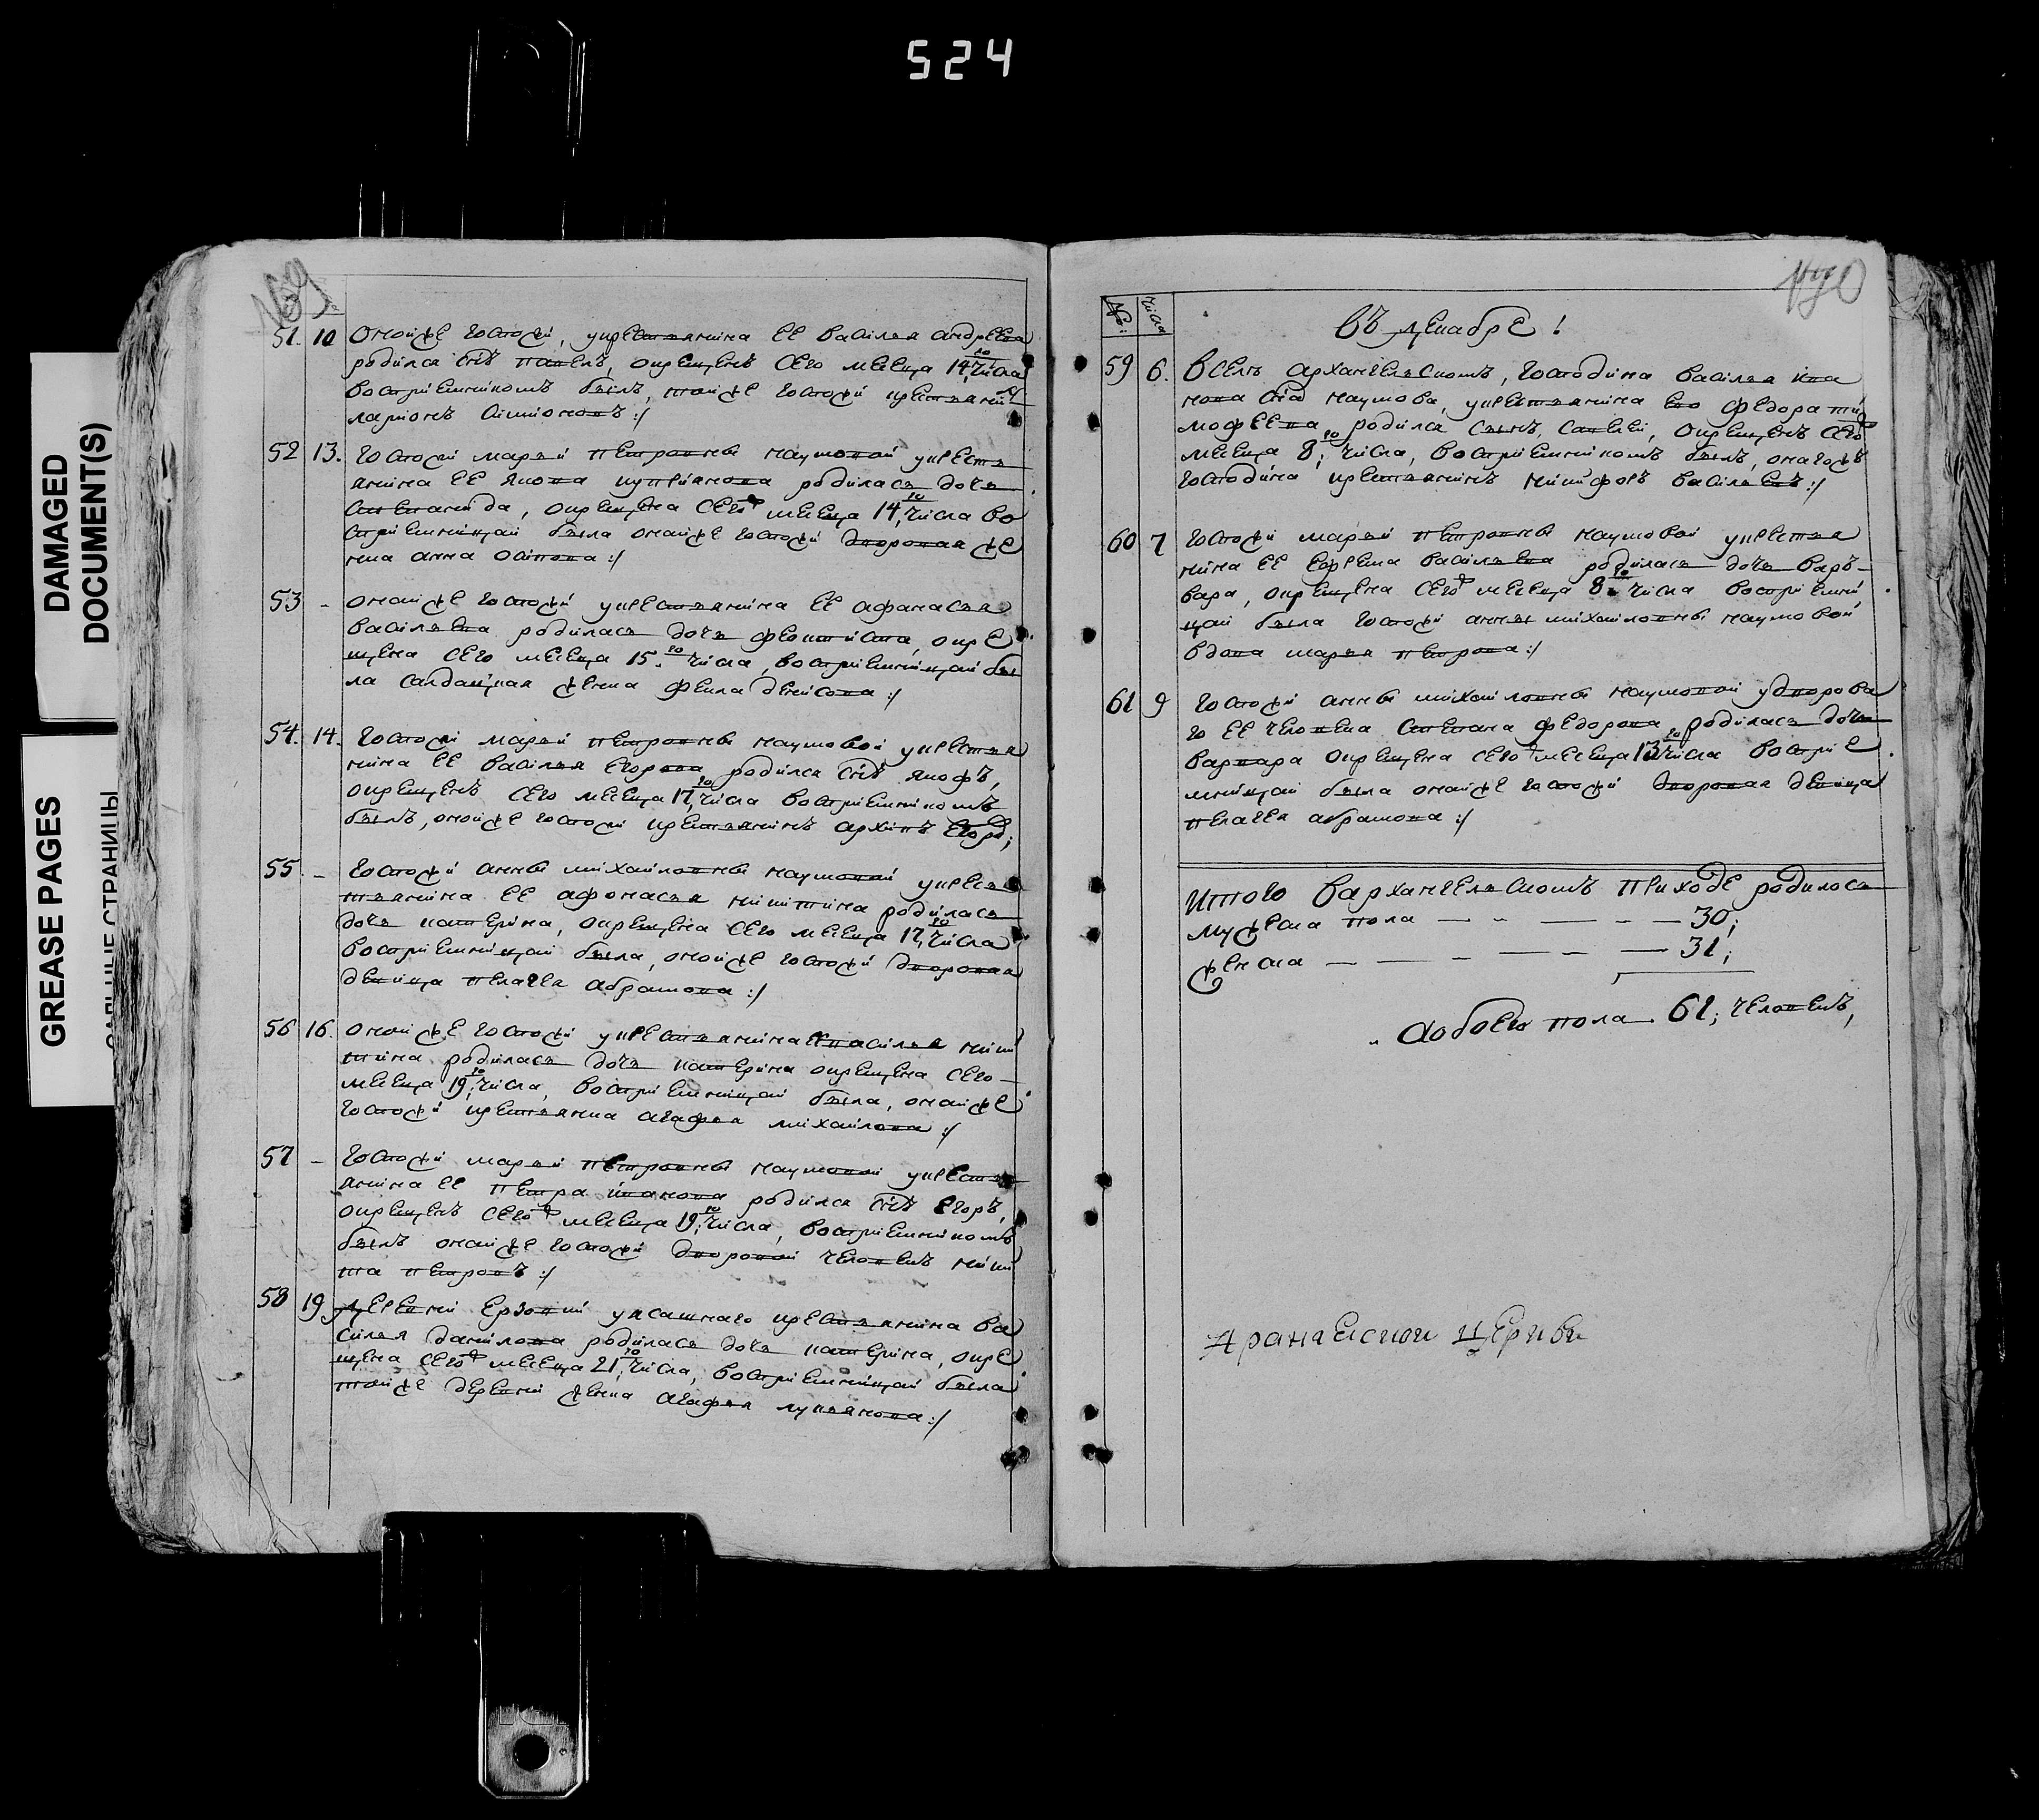 524
DAMAGED
DOCUMENT(S)
GREASE PAGES
169
51. 10 оной же госпожи, укрестьянина ее василья андреева
родился снъ павелъ, окрещенъ сего месеца 14го числа
восприемникомъ былъ, тойже госпожи крестьянинъ
ларионъ симионовъ :/
52 13. госпожи марьи петровны наумовой укресть
янина ее якова куприянова родилась дочь
степанида, окрещена сегож месеца 14го числа во
сприемницей была онойже госпожи дворовая же
нка анна осипова :/
53 - онойже госпожи укрестьянина ее афанасья
васильева родилась дочь феоктиста, окре
щена сего месеца 15.го числа, восприемницей бы
ла салдацкая женка фекла денисова :/
54. 14. госпожи марьи петровны наумовой укрестья
нина ее василья егорова родился снъ якофъ,
окрещенъ сего месеца 17го числа восприемникомъ
былъ, онойже госпожи крестьянинъ архипъ егоров;
55. - госпожи анны михайловны наумовой укрес
тьянина ее афонасья никитина родилась
дочь катерина, окрещена сего месеца 17го числа
восприемницей была, онойже госпожи дворовая
девица пелагея абрамова :/
56 16. онойже госпожи укрестьянина василья ники
тина родилась дочь катерина окрещена сего
месеца 19го числа, восприемницей была, онойже
госпожи крестьянка агафья михайлова :/
57 - госпожи марьи петровны наумовой укресть
янина ее петра иванова родился снъ егоръ,
окрещенъ сегож месеца 19го числа, восприемникомъ
былъ онойже госпожи дворовой человекъ ники
та петровъ :/
58 19 деревни ерзовки уясашнаго крестьянина ва
силья данилова родилась дочь катерина, окре
щена сегож месеца 21го числа, восприемницей была
тойже деревни женка агафья лукьянова :/
№: числа
въ декабре !
59 6. вселе архангельскомъ, господина василья ива
нова сна наумова, укрестьянина ево федора ти
мофеева родился сынъ, савелей, окрещенъ сегож
месеца 8го числа, восприемникомъ былъ, оногожъ
господина крестьянинъ никифоръ васильевъ :/
60 7 госпожи марьи петровны наумовой укрестья
нина ее ефрема васильева родилась дочь варъ-
вара, окрещена сегож месеца 8го числа восприемни
цей была госпожи анны михайловны наумовой
вдова марья петрова :/
61 9 госпожи анны михайловны наумовой удворова
го ее человека степана федорова родилась дочь
варвара окрещена сегож месеца 13го числа восприе
мницей была онойже госпожи дворовая девица
пелагея абрамова :/
итого вархангельскомъ приходе родилось
мужеска пола — — — 30;
женска — — — — 31;
а обоего пола 61; человекъ,
аранаевской церкви